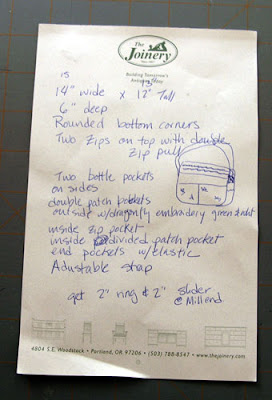 The
Joinery
Building Tomorrow's
15 13
14" wide x 12" Tall
6" deep
Rounded bottom corners
Two zips on top with double
zip pull
Two bottle pockets
on sides
double patch pockets
outside w/dragonfly embroidery green &
inside zip pocket
inside divided patch pocket
end pockets w/elastic
Adustable strap
get 2" ring & 2" slider
@ Millend
4804 S.E. Woodstock • Portland, OR 97206 • (503) 788-8547 • www.thejoinery.com